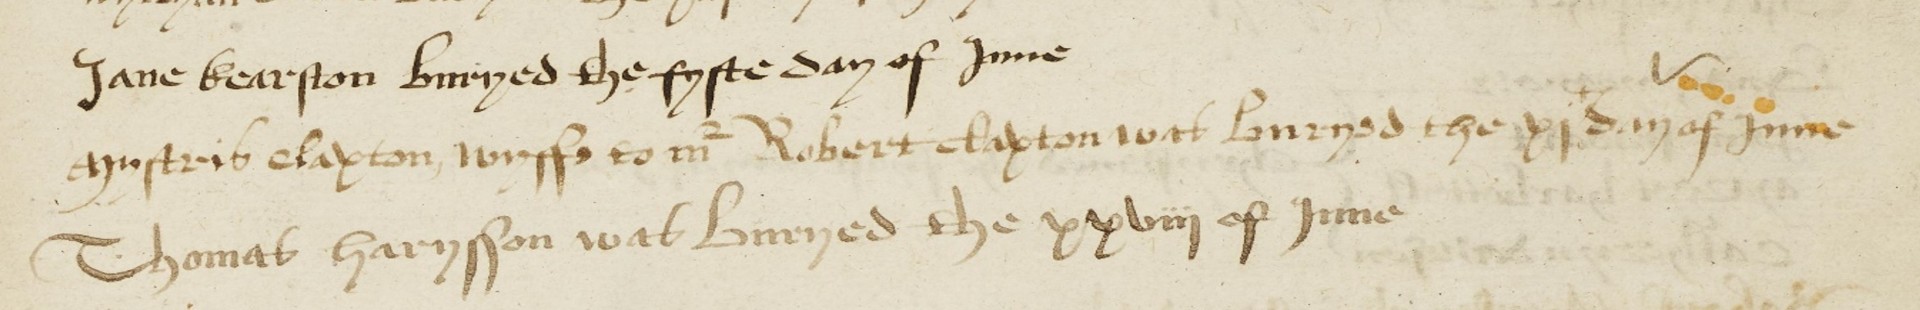 Jane kearston buryed the fyste day of June
Mystris claxton, wyffe to mr Robert claxton was buryed the xjth day of June
Thomas harysson was buryed the xxviij of June